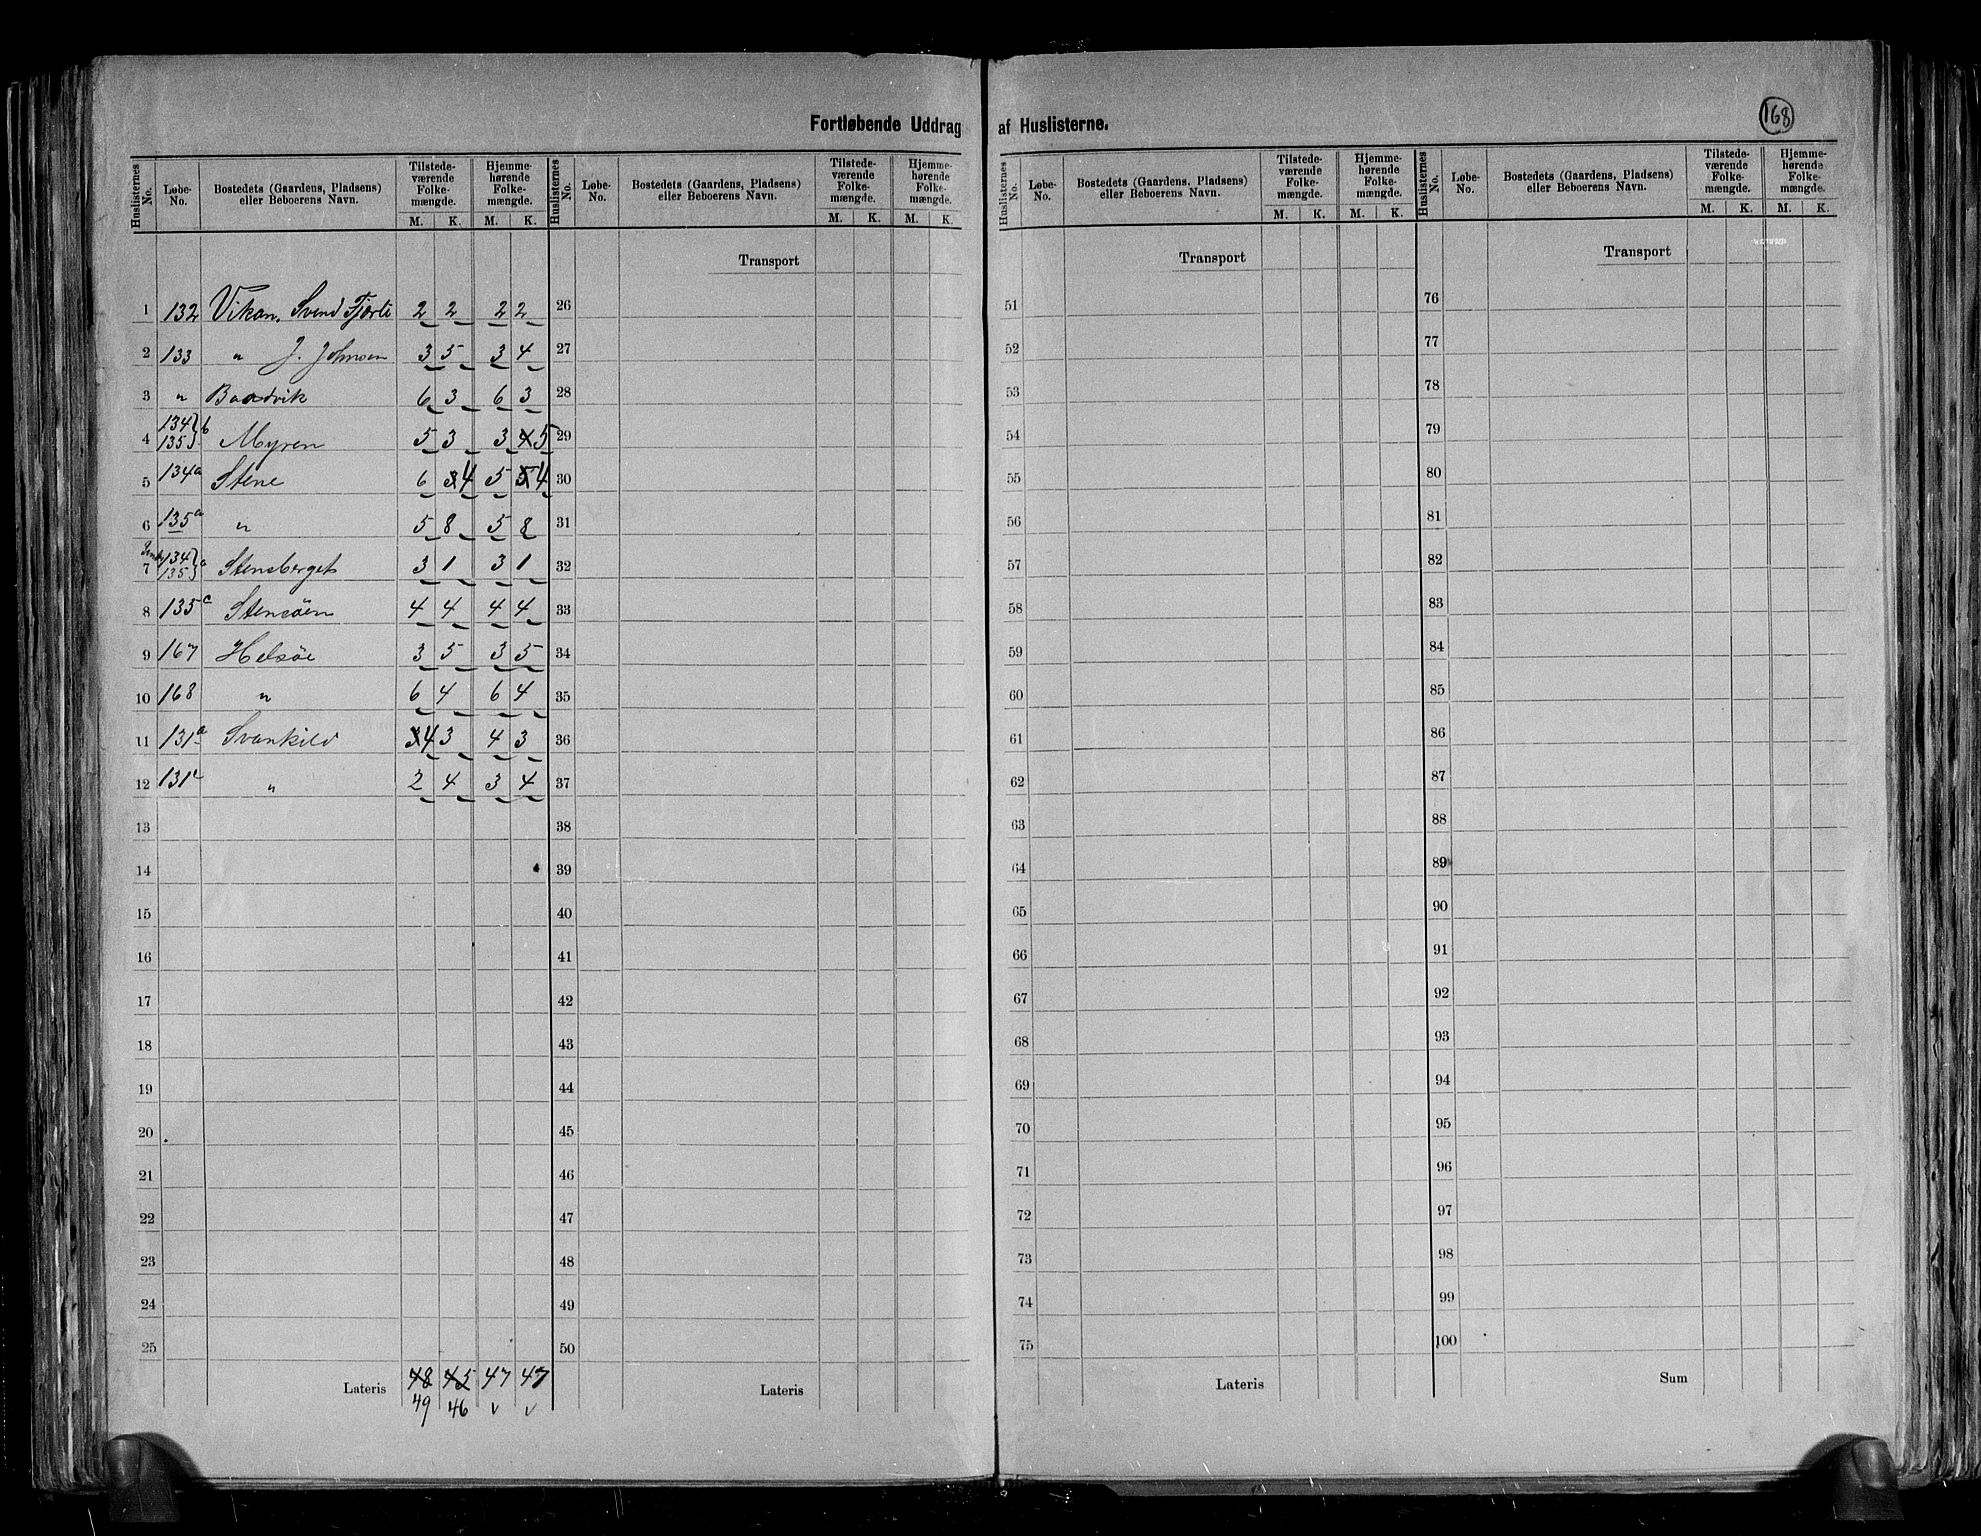 168
Fortløbende Uddrag af Huslisterne.
Huslisternes No. Løbe-No. Bostedets (Gaardens, Pladsens) eller Beboerens Navn. Tilstede-værende Folke-mængde. M. K. Hjemme-hørende Folke-mængde. M. K.
1 132 Vikan, Svend Fjorti 2 2 2 2
2 133 " J. Johnsen 3 5 3 4
3 " Baadvik 6 3 6 3
4 134 135 } b Myren 5 3 3 4 5
5 134a Stene 6 3 4 5 5 4
6 135a " 5 8 5 8
7 134 135 } a Stensberget 3 1 3 1
8 135c Stensöen 4 4 4 4
9 167 Helsöe 3 5 3 5
10 168 " 6 4 6 4
11 131a Svankild 3 4 3 4 3
12 131c " 2 4 3 4
13
14
15
16
17
18
19
20
21
22
23
24
25
Lateris 48 45 47 47
49 46 v v
Huslisternes No. Løbe-No. Bostedets (Gaardens, Pladsens) eller Beboerens Navn. Tilstede-værende Folke-mængde. M. K. Hjemme-hørende Folke-mængde. M. K.
Transport
26
27
28
29
30
31
32
33
34
35
36
37
38
39
40
41
42
43
44
45
46
47
48
49
50
Lateris
Huslisternes No. Løbe-No. Bostedets (Gaardens, Pladsens) eller Beboerens Navn. Tilstede-værende Folke-mængde. M. K. Hjemme-hørende Folke-mængde. M. K.
Transport
51
52
53
54
55
56
57
58
59
60
61
62
63
64
65
66
67
68
69
70
71
72
73
74
75
Lateris
Huslisternes No. Løbe-No. Bostedets (Gaardens, Pladsens) eller Beboerens Navn. Tilstede-værende Folke-mængde. M. K. Hjemme-hørende Folke-mængde. M. K.
Transport
76
77
78
79
80
81
82
83
84
85
86
87
88
89
90
91
92
93
94
95
96
97
98
99
100
Sum